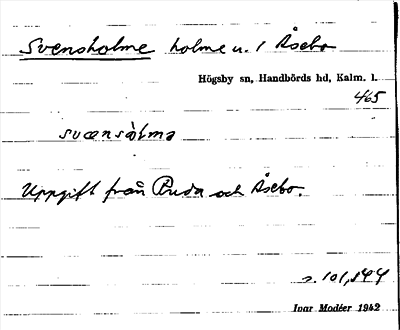 Svensholme holme u. / Åsebo
Högsby sn, Handbörds hd, Kalm. l.
465
svænsòlmə
Uppgift från Ruda och Åsebo.
s. 101, 144
Ivar Modéer 1942